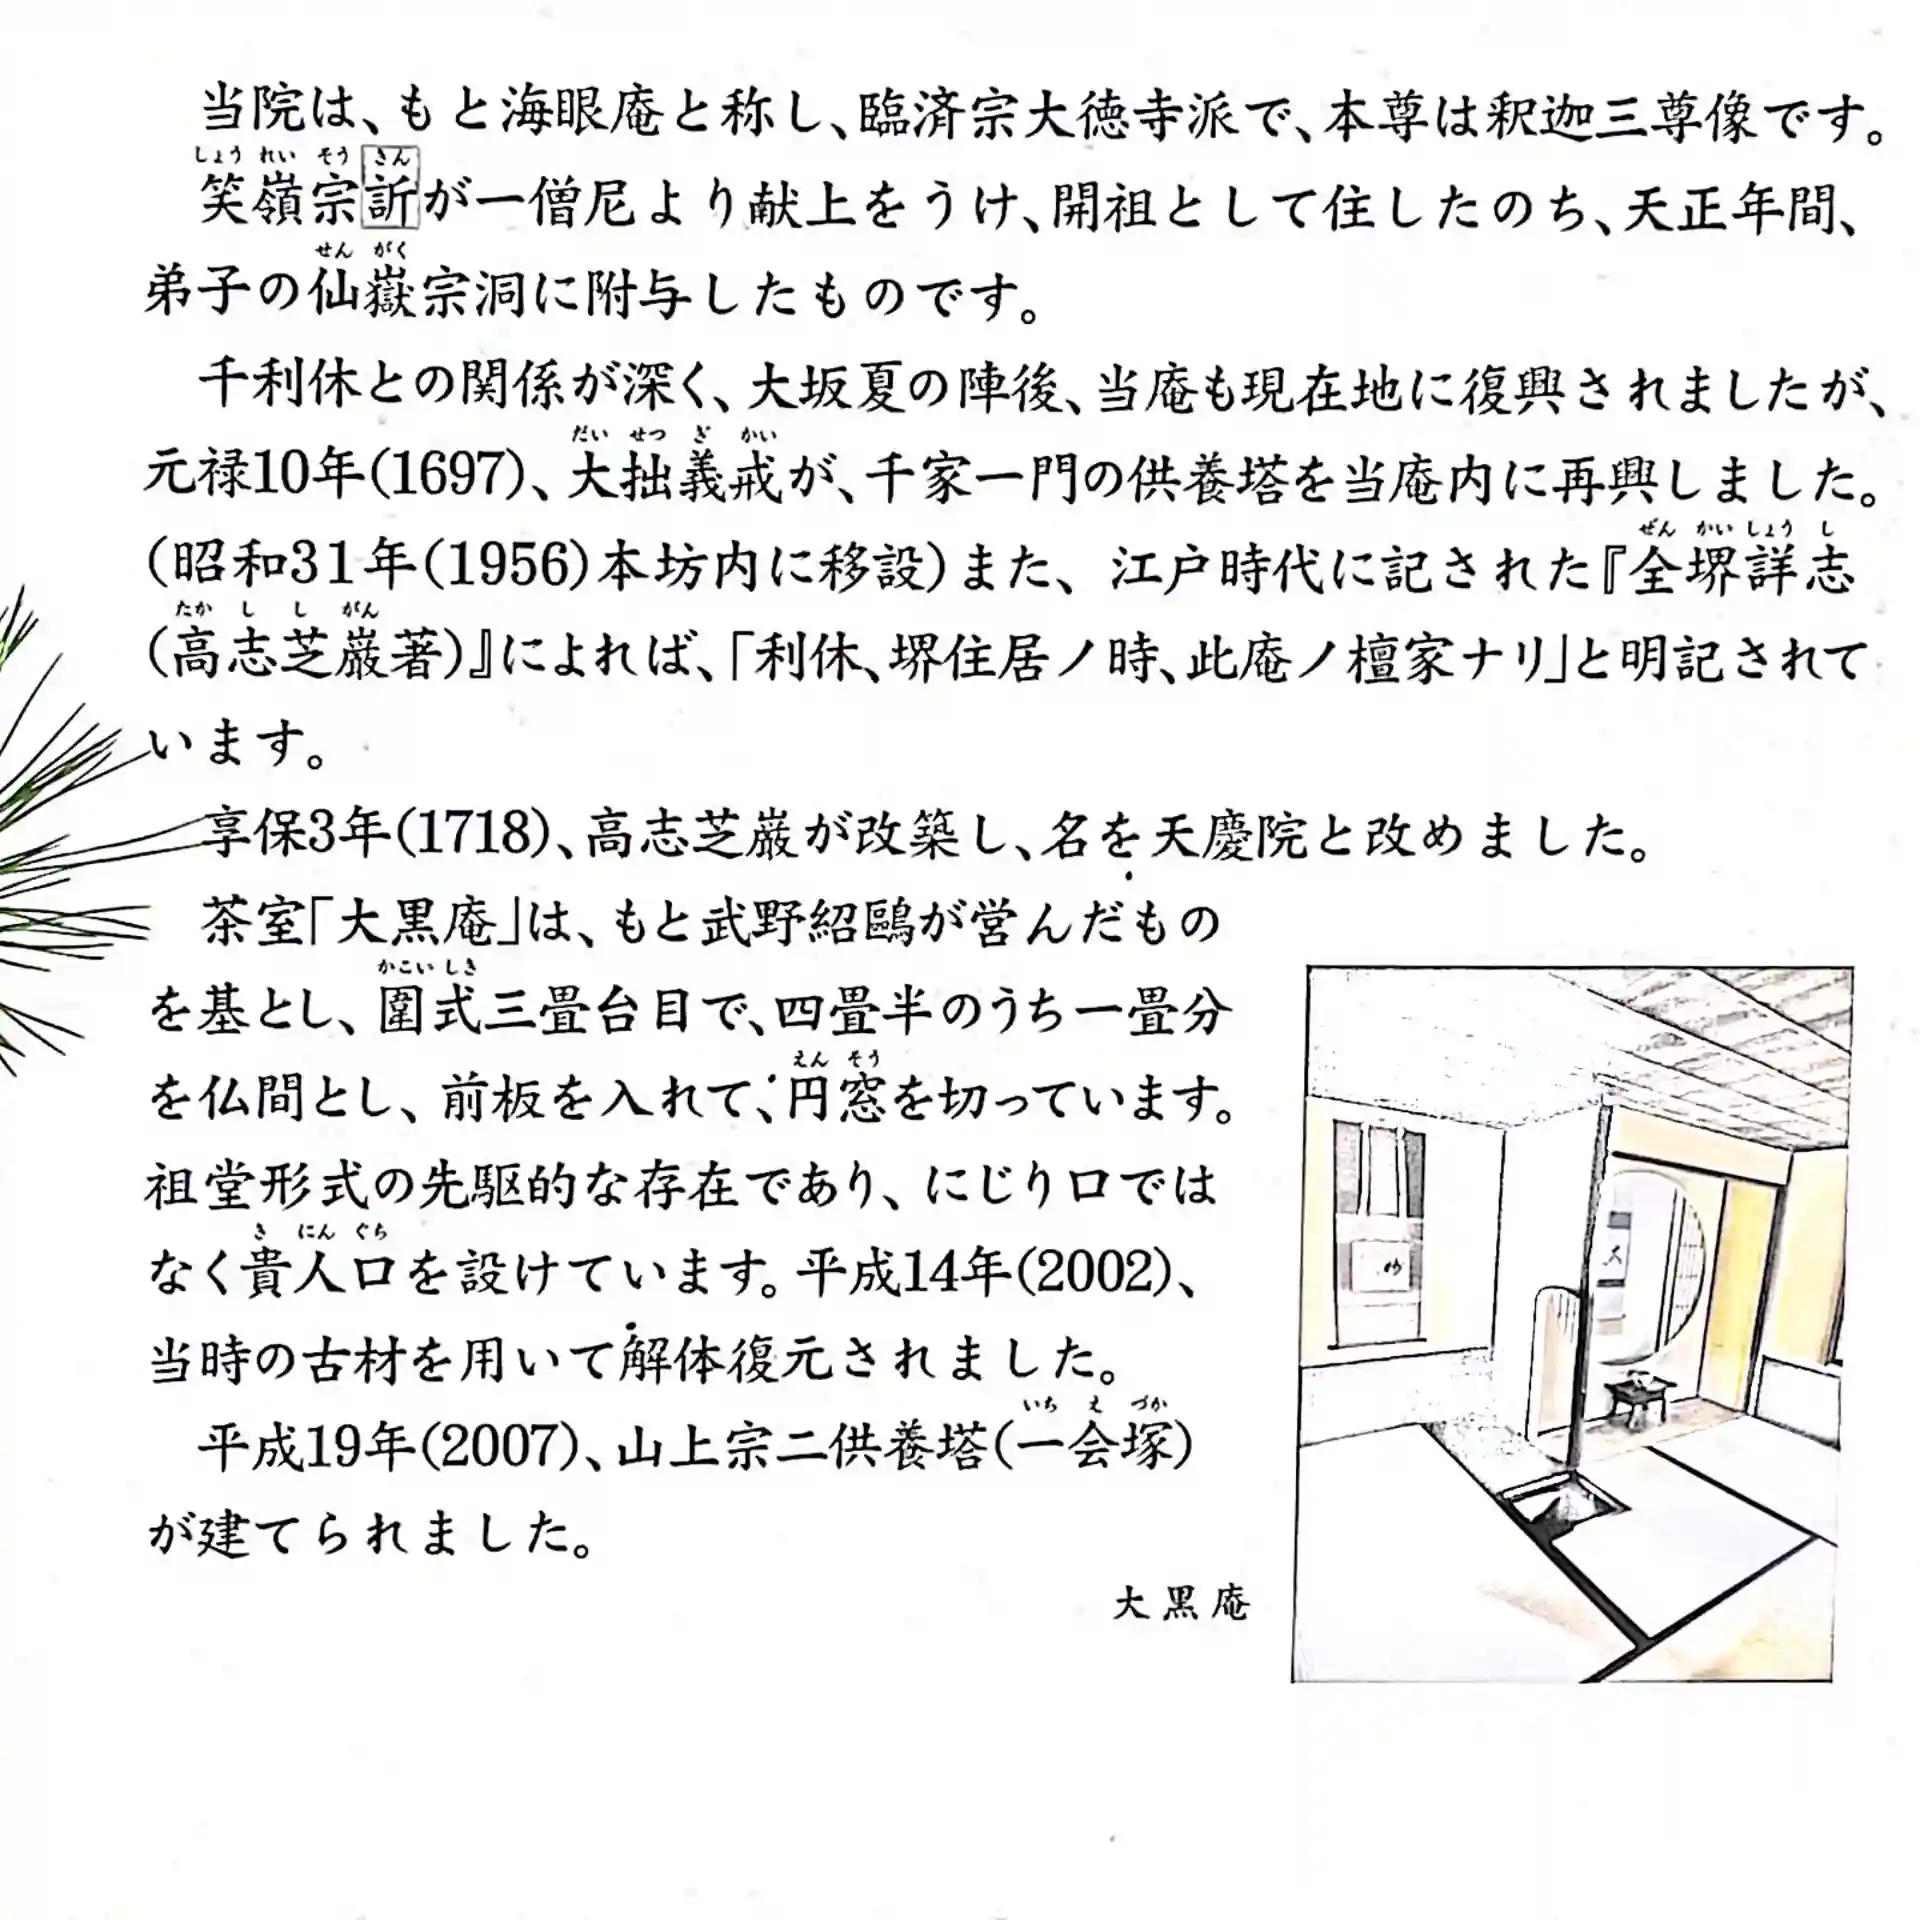 当院は、もと海眼庵と称し、臨済宗大徳寺派で、本尊は釈迦三尊像です。
しょう れい そう きん
笑嶺宗訢が一僧尼より献上をうけ、開祖として住したのち、天正年間、
せん がく
弟子の仙嶽宗洞に附与したものです。
千利休との関係が深く、大坂夏の陣後、当庵も現在地に復興されましたが、
だい せつ ぎ かい
元禄10年(1697)、大拙義戒が、千家一門の供養塔を当庵内に再興しました。
ぜん かい しょう し
(昭和31年(1956)本坊内に移設)また、江戸時代に記された『全堺詳志
たか し し がん
(高志芝巌著)』によれば、「利休、堺住居ノ時、此庵ノ檀家ナリ」と明記されて
います。
享保3年(1718)、高志芝巌が改築し、名を天慶院と改めました。
茶室「大黒庵」は、もと武野紹鷗が営んだもの
かこい しき
を基とし、圍式三畳台目で、四畳半のうち一畳分
えん そう
を仏間とし、前板を入れて、円窓を切っています。
祖堂形式の先駆的な存在であり、にじり口では
き にん ぐち
なく貴人口を設けています。平成14年(2002)、
当時の古材を用いて解体復元されました。
いち え づか
平成19年(2007)、山上宗二供養塔(一会塚)
が建てられました。
大黒庵